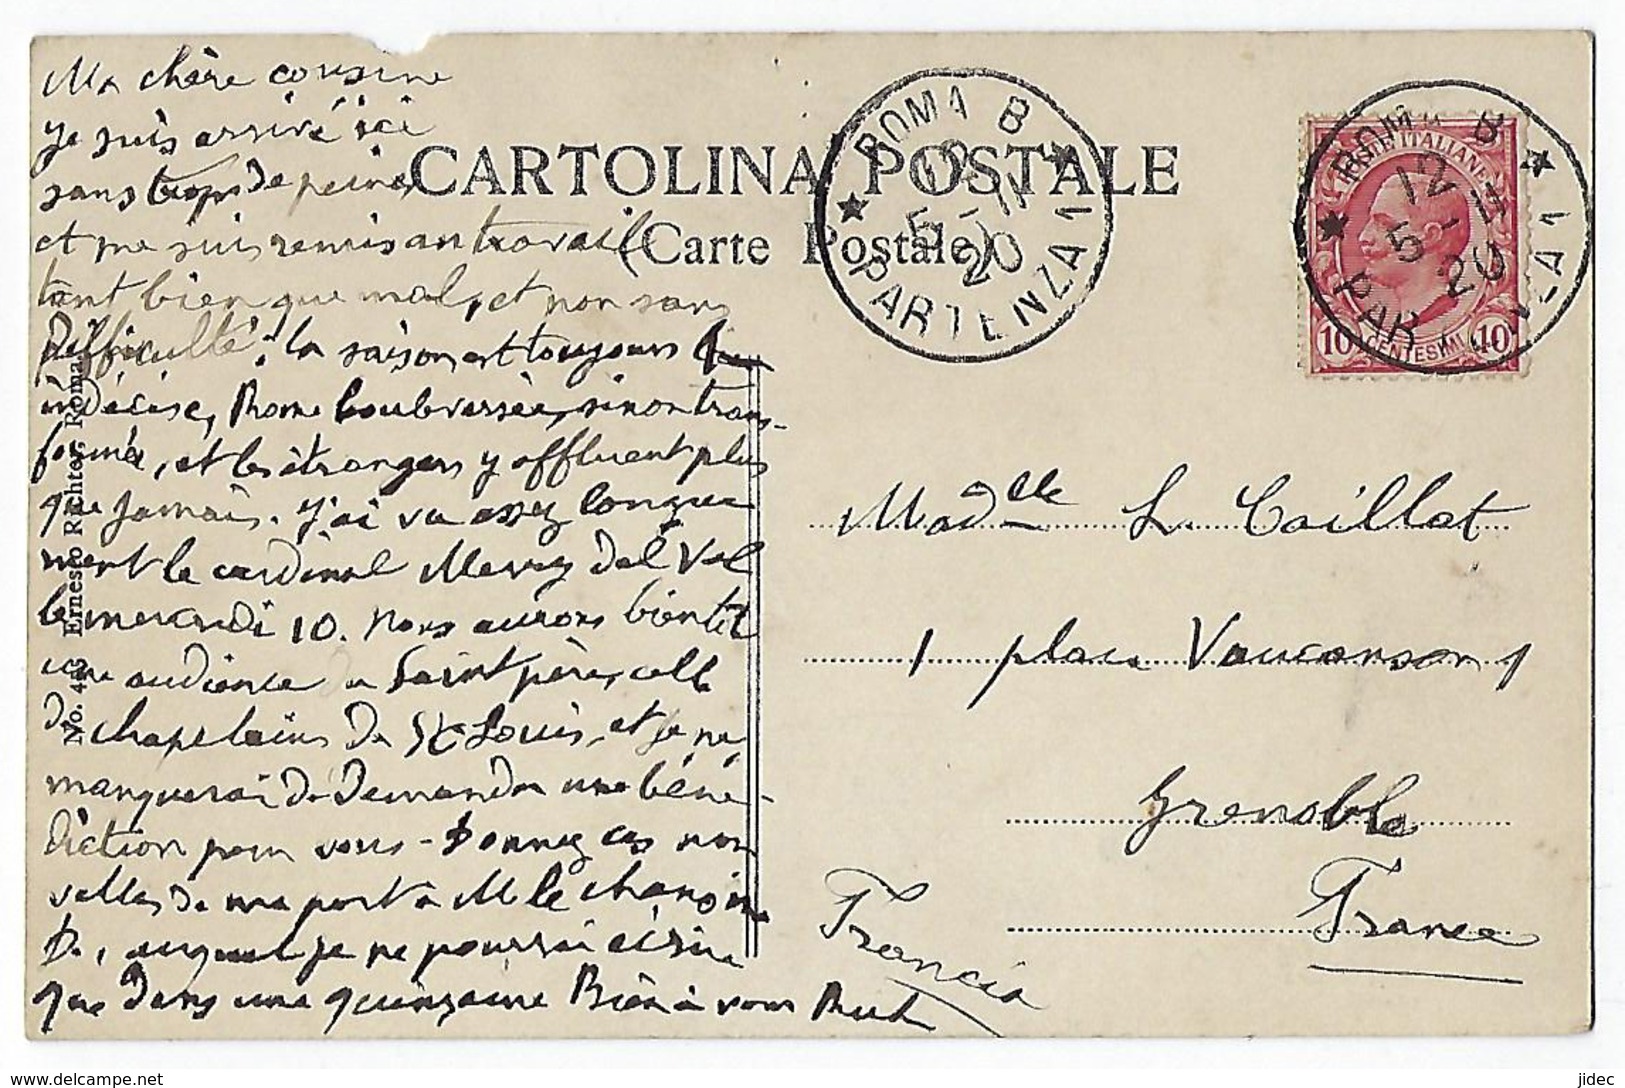 Ma chère cousine
je suis arrivé ici
sans trop de peine,
et me suis remis au travail
tant bien que mal, et non sans
difficulté. la saison est toujours
indécise, Rome bouleversée, sinon trans-
formée, et les étrangers y affluent plus
que jamais. j'ai vu assez longue
ment le cardinal Merry del Val
le mercredi 10. Nous aurons bientôt
une audience du Saint père, celle
des chapelains de St Louis, et je ne
manquerai de demander une béné-
diction pour vous - Donnez ces nou
velles de ma part à M le chanoine
D., auquel je ne pourrai écrire
que dans une quinzaine Bien à vous
CARTOLINA POSTALE
(Carte Postale)
No. Ernesto Richter, Roma
ROMA B
12
5-11
20
PARTENZA 1
POSTE ITALIANE
10 CENTESIMI 10
ROMA B
12
5-11
20
PARTENZA 1
Madelle L. Caillat
1 place Vaucanson 1
Grenoble
France
Francia
delcampe.net
jidec